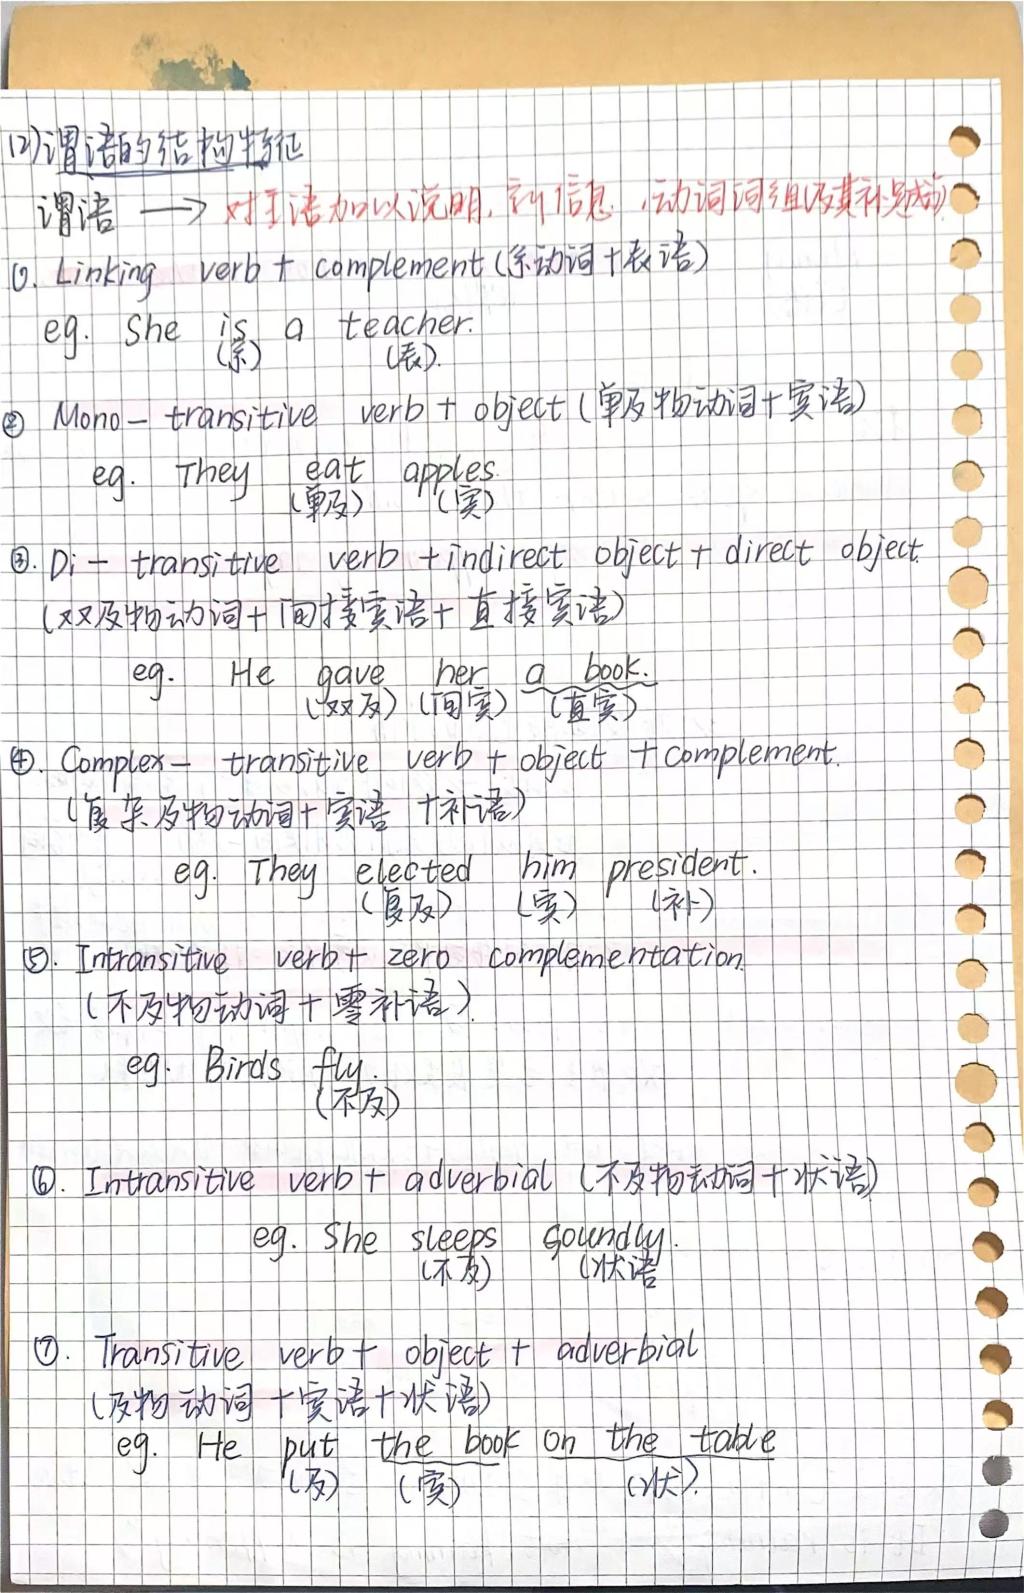 (2)谓语的结构特征
谓语 → 对主语加以说明,新信息,动词词组及其补足成分
①. Linking verb + complement (系动词+表语)
eg. She is a teacher.
(系) (表).
② Mono-transitive verb + object (单及物动词+宾语)
eg. They eat apples.
(单及) (宾)
③. Di-transitive verb + indirect object + direct object.
(双及物动词+间接宾语+直接宾语)
eg. He gave her a book.
(双及) (间宾) (直宾)
④. Complex-transitive verb + object + complement.
(复杂及物动词+宾语+补语)
eg. They elected him president.
(复及) (宾) (补)
⑤. Intransitive verb + zero complementation.
(不及物动词+零补语).
eg. Birds fly.
(不及)
⑥. Intransitive verb + adverbial (不及物动词+状语)
eg. She sleeps soundly.
(不及) (状语
⑦. Transitive verb + object + adverbial
(及物动词+宾语+状语)
eg. He put the book on the table
(及) (宾) (状).